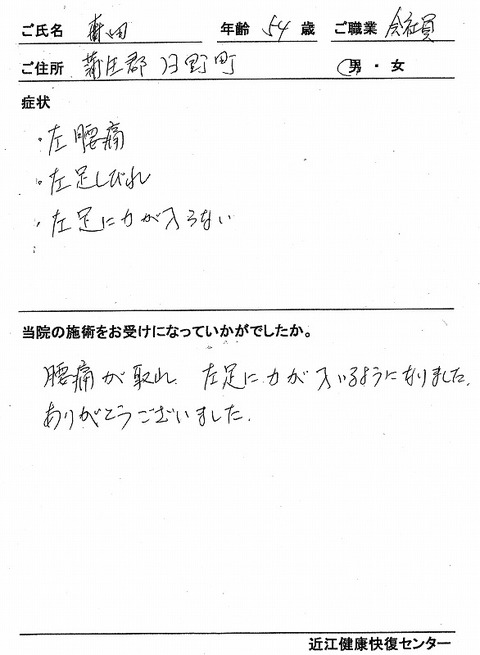 ご氏名 田 年齢 54 歳 ご職業 会社員
ご住所 蒲生郡日野町 男・女
症状
・左腰痛
・左足しびれ
・左足に力が入らない
当院の施術をお受けになっていかがでしたか。
腰痛が取れ 左足に力が入いるようになりました。
ありがとうございました。
近江健康快復センター